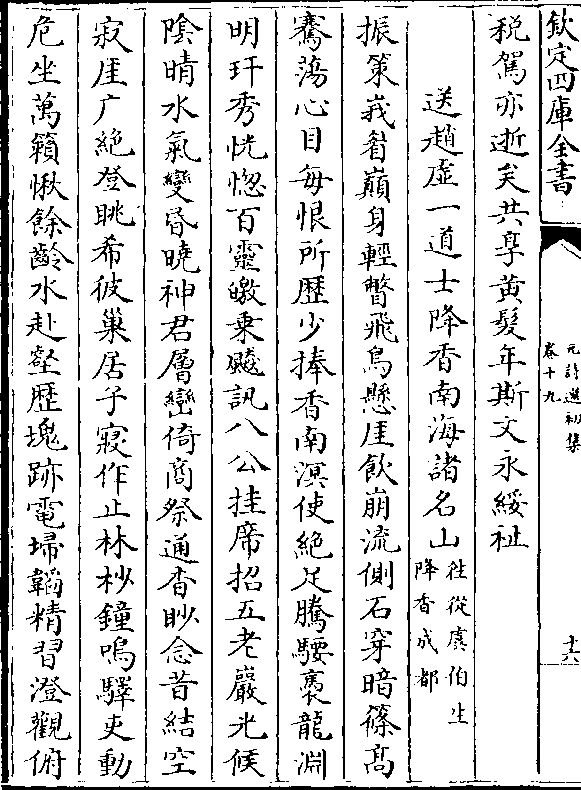 欽定四庫全書
元詩選初集
卷十九
十六
稅駕亦逝矣共享黃髮年斯文永綏祉
送趙虛一道士降香南海諸名山
往從虞伯生
降香成都
振策峩眉巔身輕瞥飛鳥懸厓飲崩流側石穿暗篠高
騫蕩心目每恨所歷少捧香南溟使絶足騰騕褭龍淵
明玕秀恍惚百靈皦乗飈訊八公挂席招五老巖光候
陰晴水氣變昏曉神君層巒倚商祭通杳眇念昔結空
寂厓广絶登眺希彼巢居子寢作止林杪鐘鳴驛吏動
危坐萬籟愀餘齡水赴壑歴塊跡電埽韜精習澄觀俯